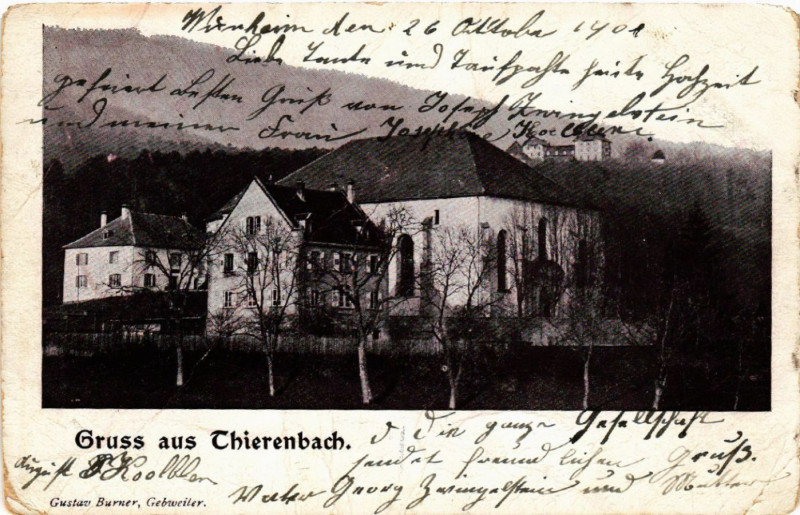 Münheim den 26 Oktobe 1901
Liebe Tante und Taufpahte heute Hochzeit
gefeiert besten Gruß von Joseph Zwingelstein
und meiner Frau Josephine
Gruss aus Thierenbach.
d die ganze Gesellschaft
sendet freundlichen Gruß.
August
Vater Georg Zwingelstein und Mutter
Gustav Burner, Gebweiler.